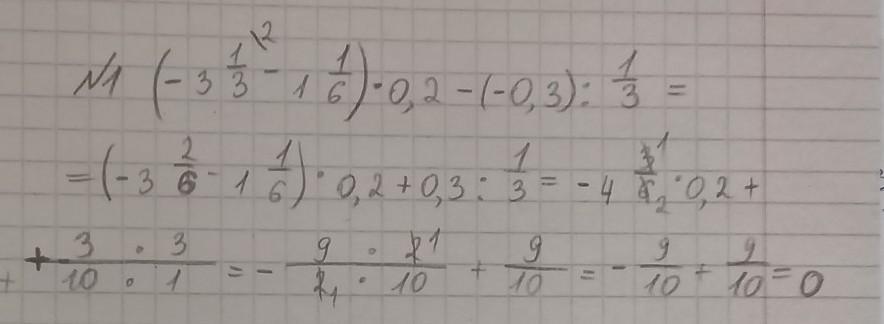 №1 (-3 1/3 \2 - 1 1/6) · 0,2 - (-0,3) : 1/3 =
= (-3 2/6 - 1 1/6) · 0,2 + 0,3 : 1/3 = -4 3 1/6 2 · 0,2 +
+ 3 · 3/10 · 1 = - 9 · 2 1/2 1 · 10 + 9/10 = - 9/10 + 9/10 = 0